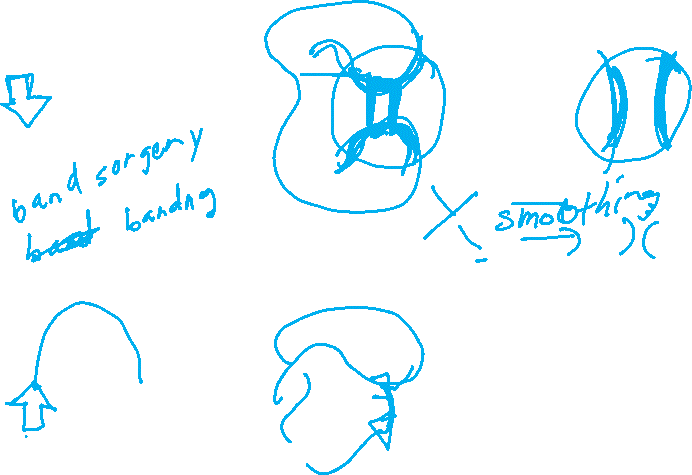 band sorgery
bandng
smoothing